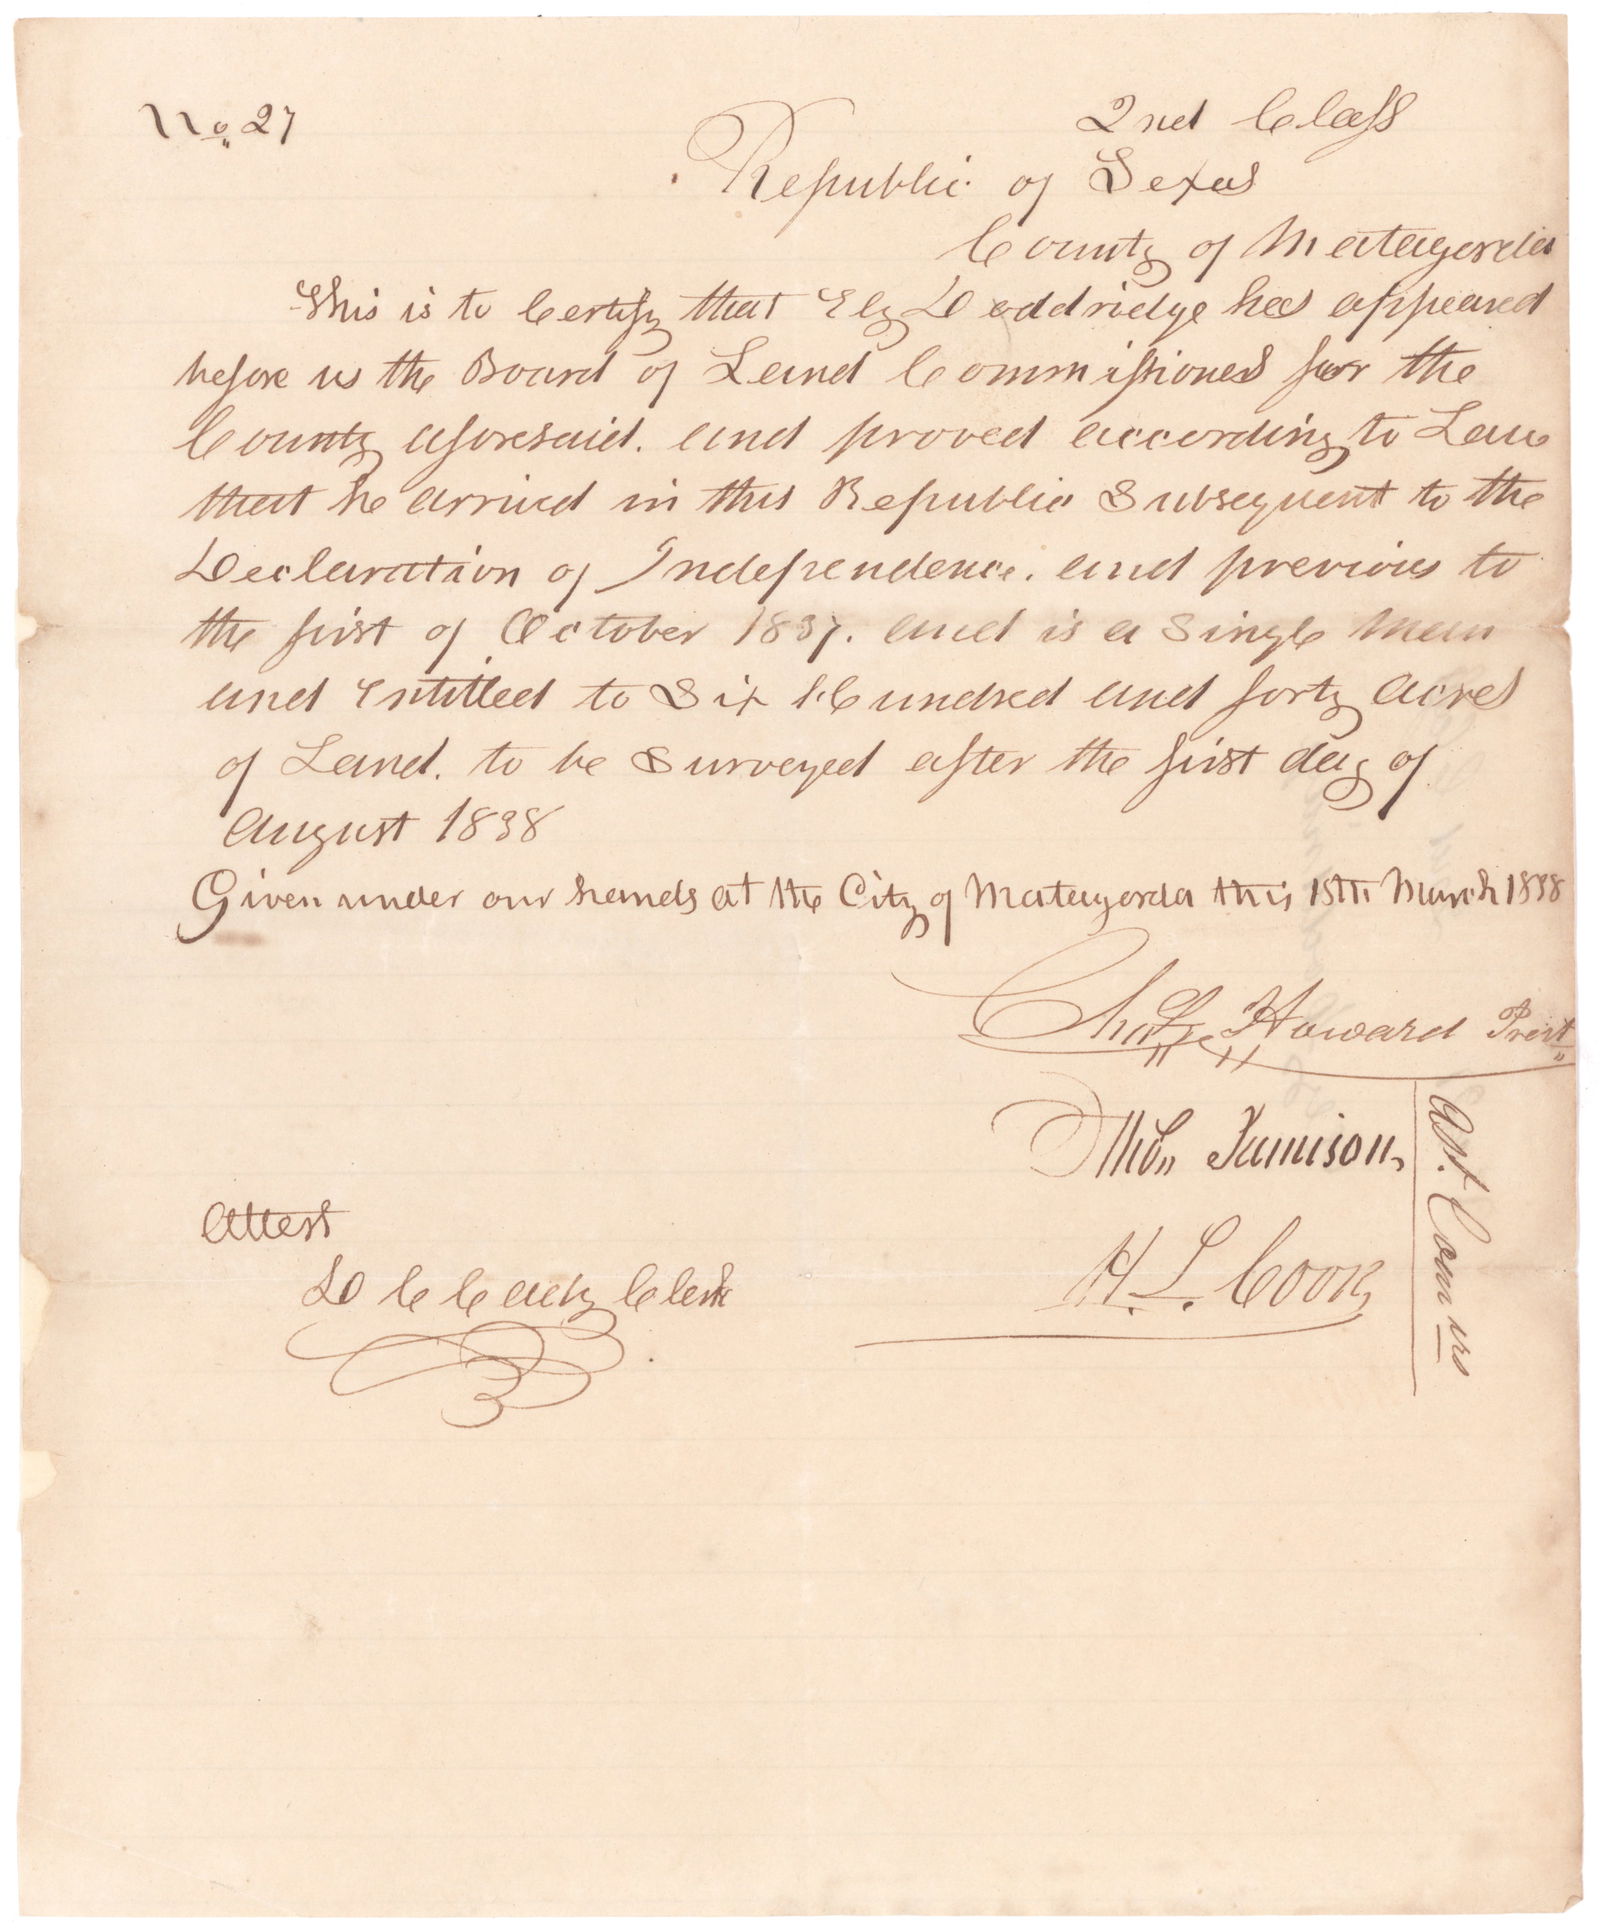 No. 27
2nd Class
Republic of Texas
County of Matagorda
This is to Certify that Ely Doddridge has appeared
before us the Board of Land Commissioners for the
County aforesaid. and proved according to Law
that he arrived in this Republic Subsequent to the
Declaration of Independence. and previous to
the first of October 1837. and is a Single Man
and Entitled to Six Hundred and forty acres
of Land. to be Surveyed after the first day of
August 1838
Given under our hands at the City of Matagorda this 15th March 1838
Howard Prest
Thos Jamison,
H. L. Cook
Ast. Comrs
Attest
D C Cady Clerk